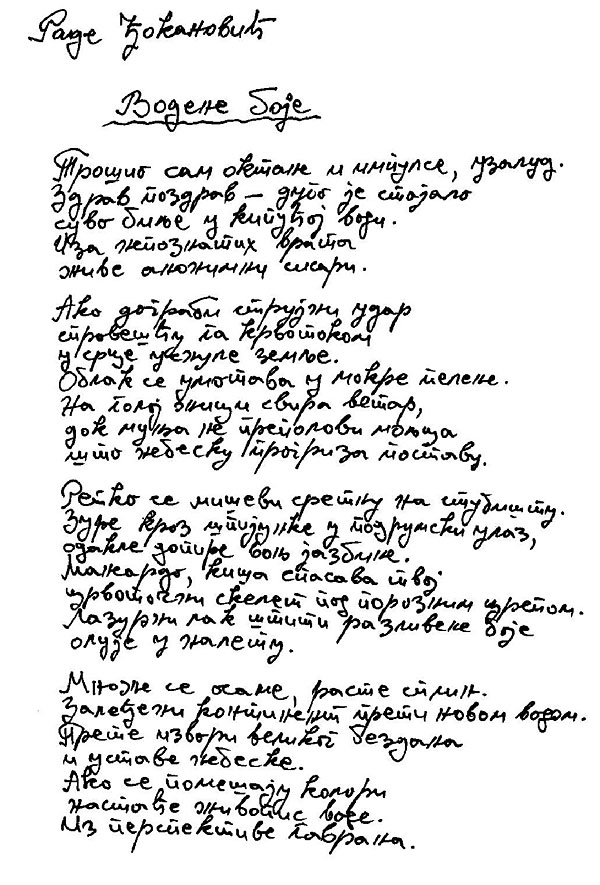 Раде Ђокановић
Водене боје
Трошио сам октане и импулсе, узалуд.
Здрав поздрав – дуго је стајало
суво биље у кипућој води.
Иза непознатих врата
живе анонимни сисари.
Ако дограби струјни удар
спровешћу га крвотоком
у срце уснуле земље.
Облак се умотава у мокре пелене.
На голој жици свира ветар,
док муња не преполови мољца
што небеску прогриза поставу.
Ретко се мишеви сретну на стубишту.
Зуре кроз шпијунке у подрумски улаз,
одакле допире воњ јазбине.
Мансардо, киша спасава твој
црвоточни скелет под порозним црепом.
Лазурни лак штити разливене боје
олује у налету.
Множе се осаме, расте сплин.
Залеђени континент прети новом водом.
Прете извори великог бездана
и уставе небеске.
Ако се помешају колори
настаће живопис воде.
Из перспективе гаврана.